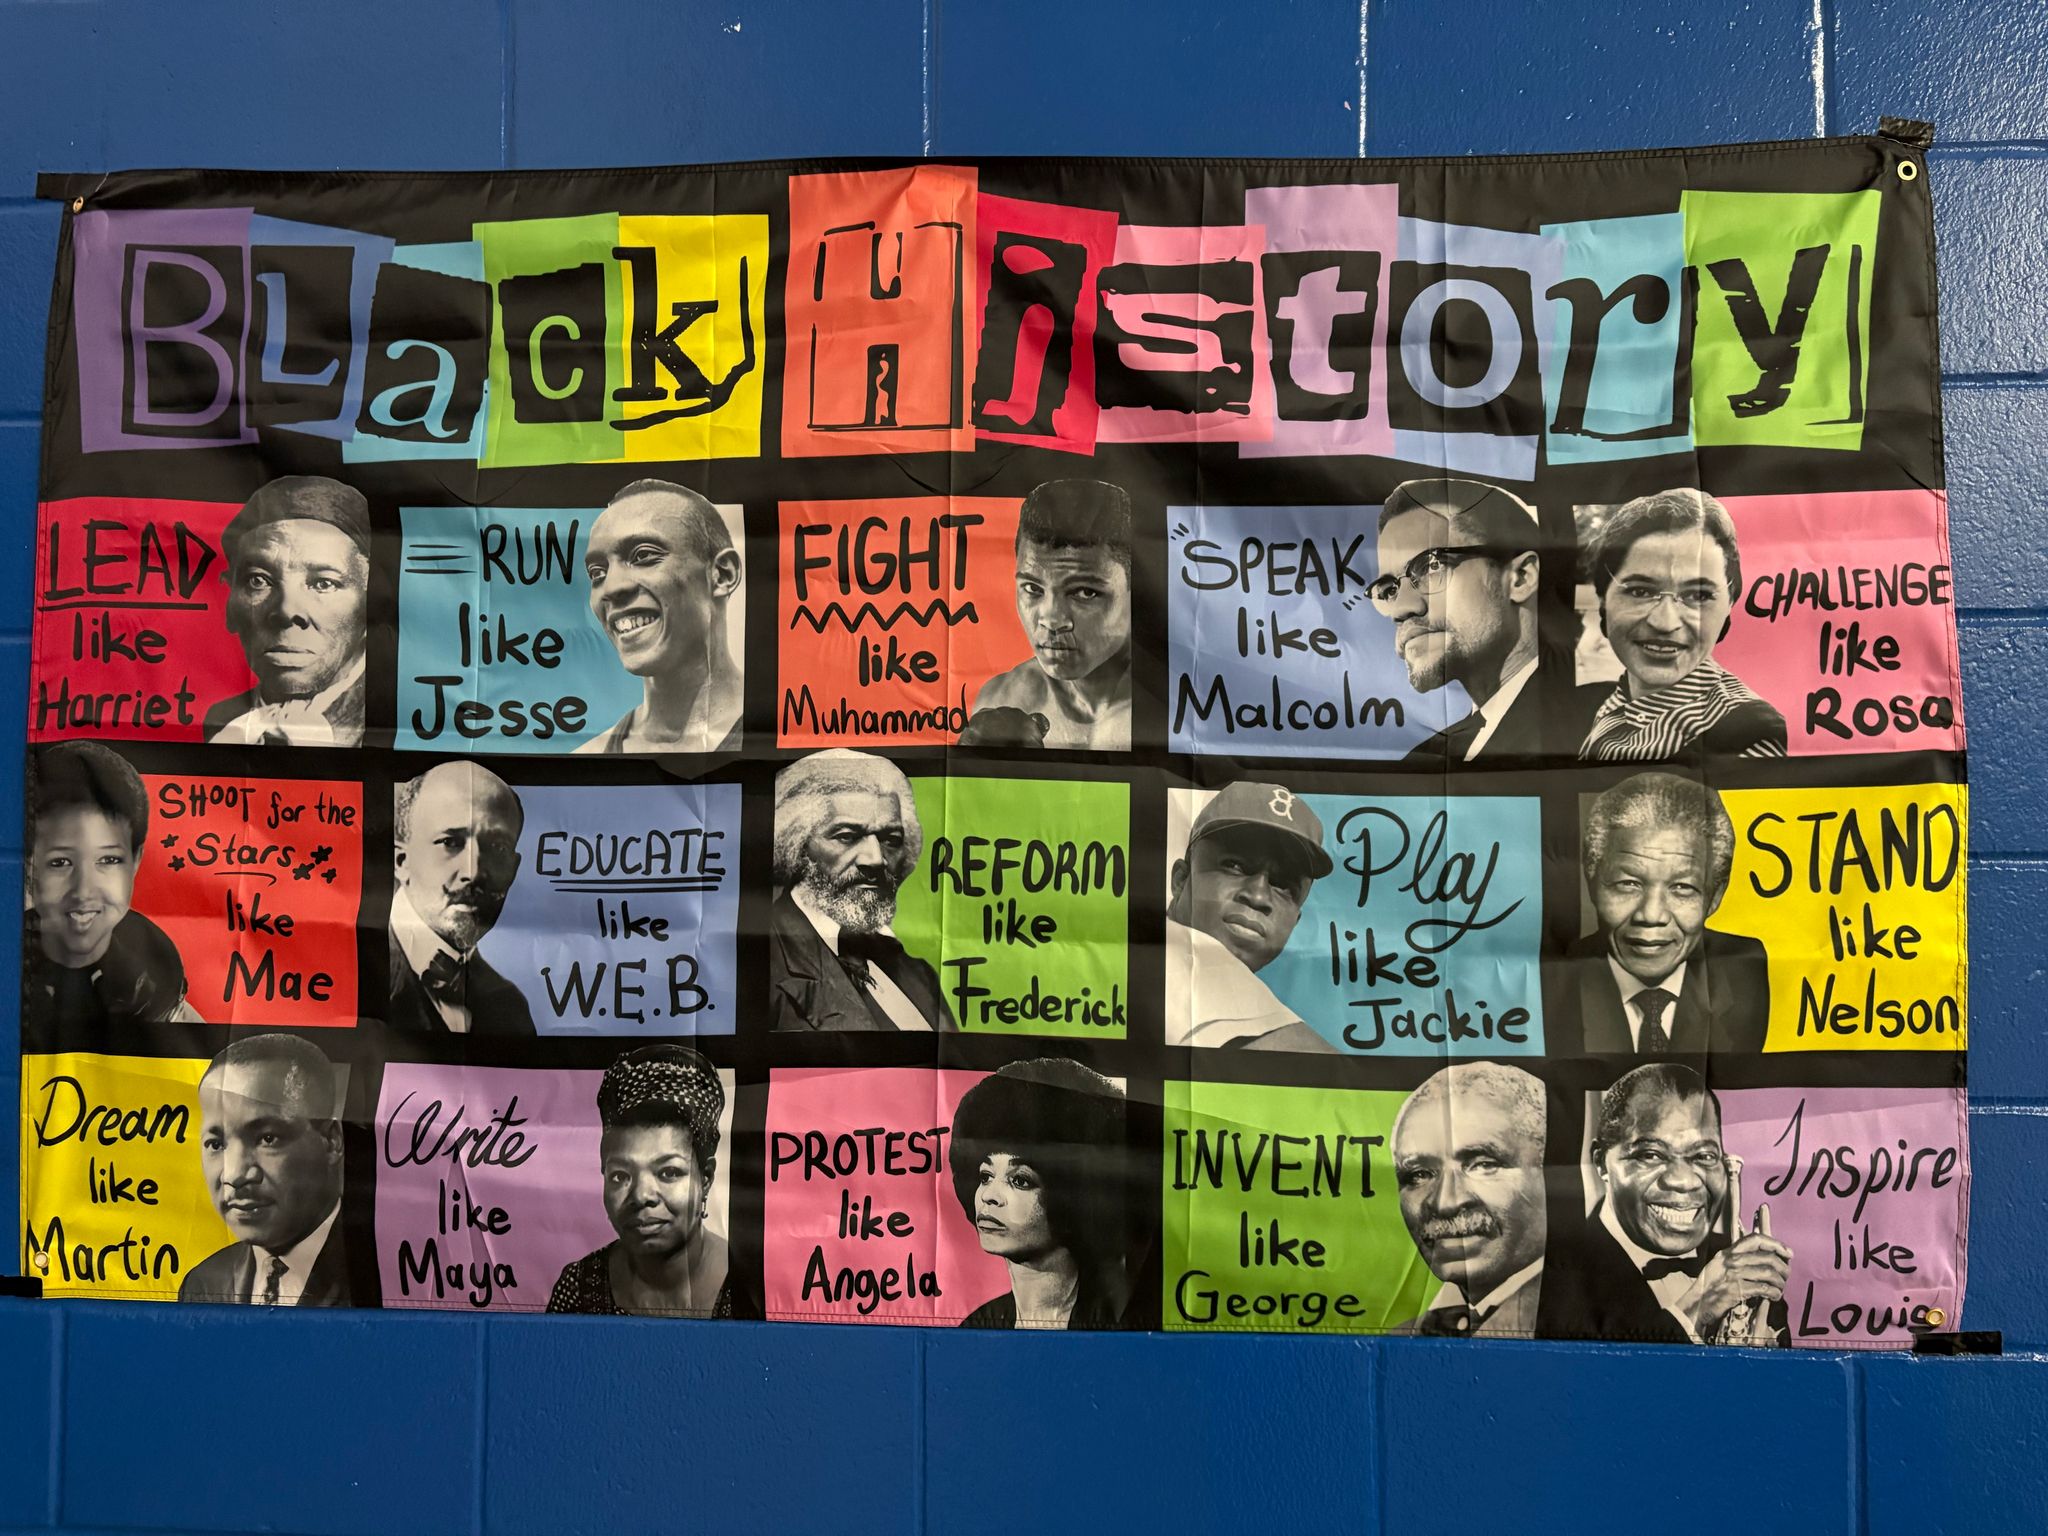 BLack History
LEAD
like
Harriet
RUN
like
Jesse
FIGHT
like
Muhammad
"SPEAK"
like
Malcolm
CHALLENGE
like
Rosa
SHOOT for the
Stars
like
Mae
EDUCATE
like
W.E.B.
REFORM
like
Frederick
B
Play
like
Jackie
STAND
like
Nelson
Dream
like
Martin
Write
like
Maya
PROTEST
like
Angela
INVENT
like
George
Inspire
like
Louis